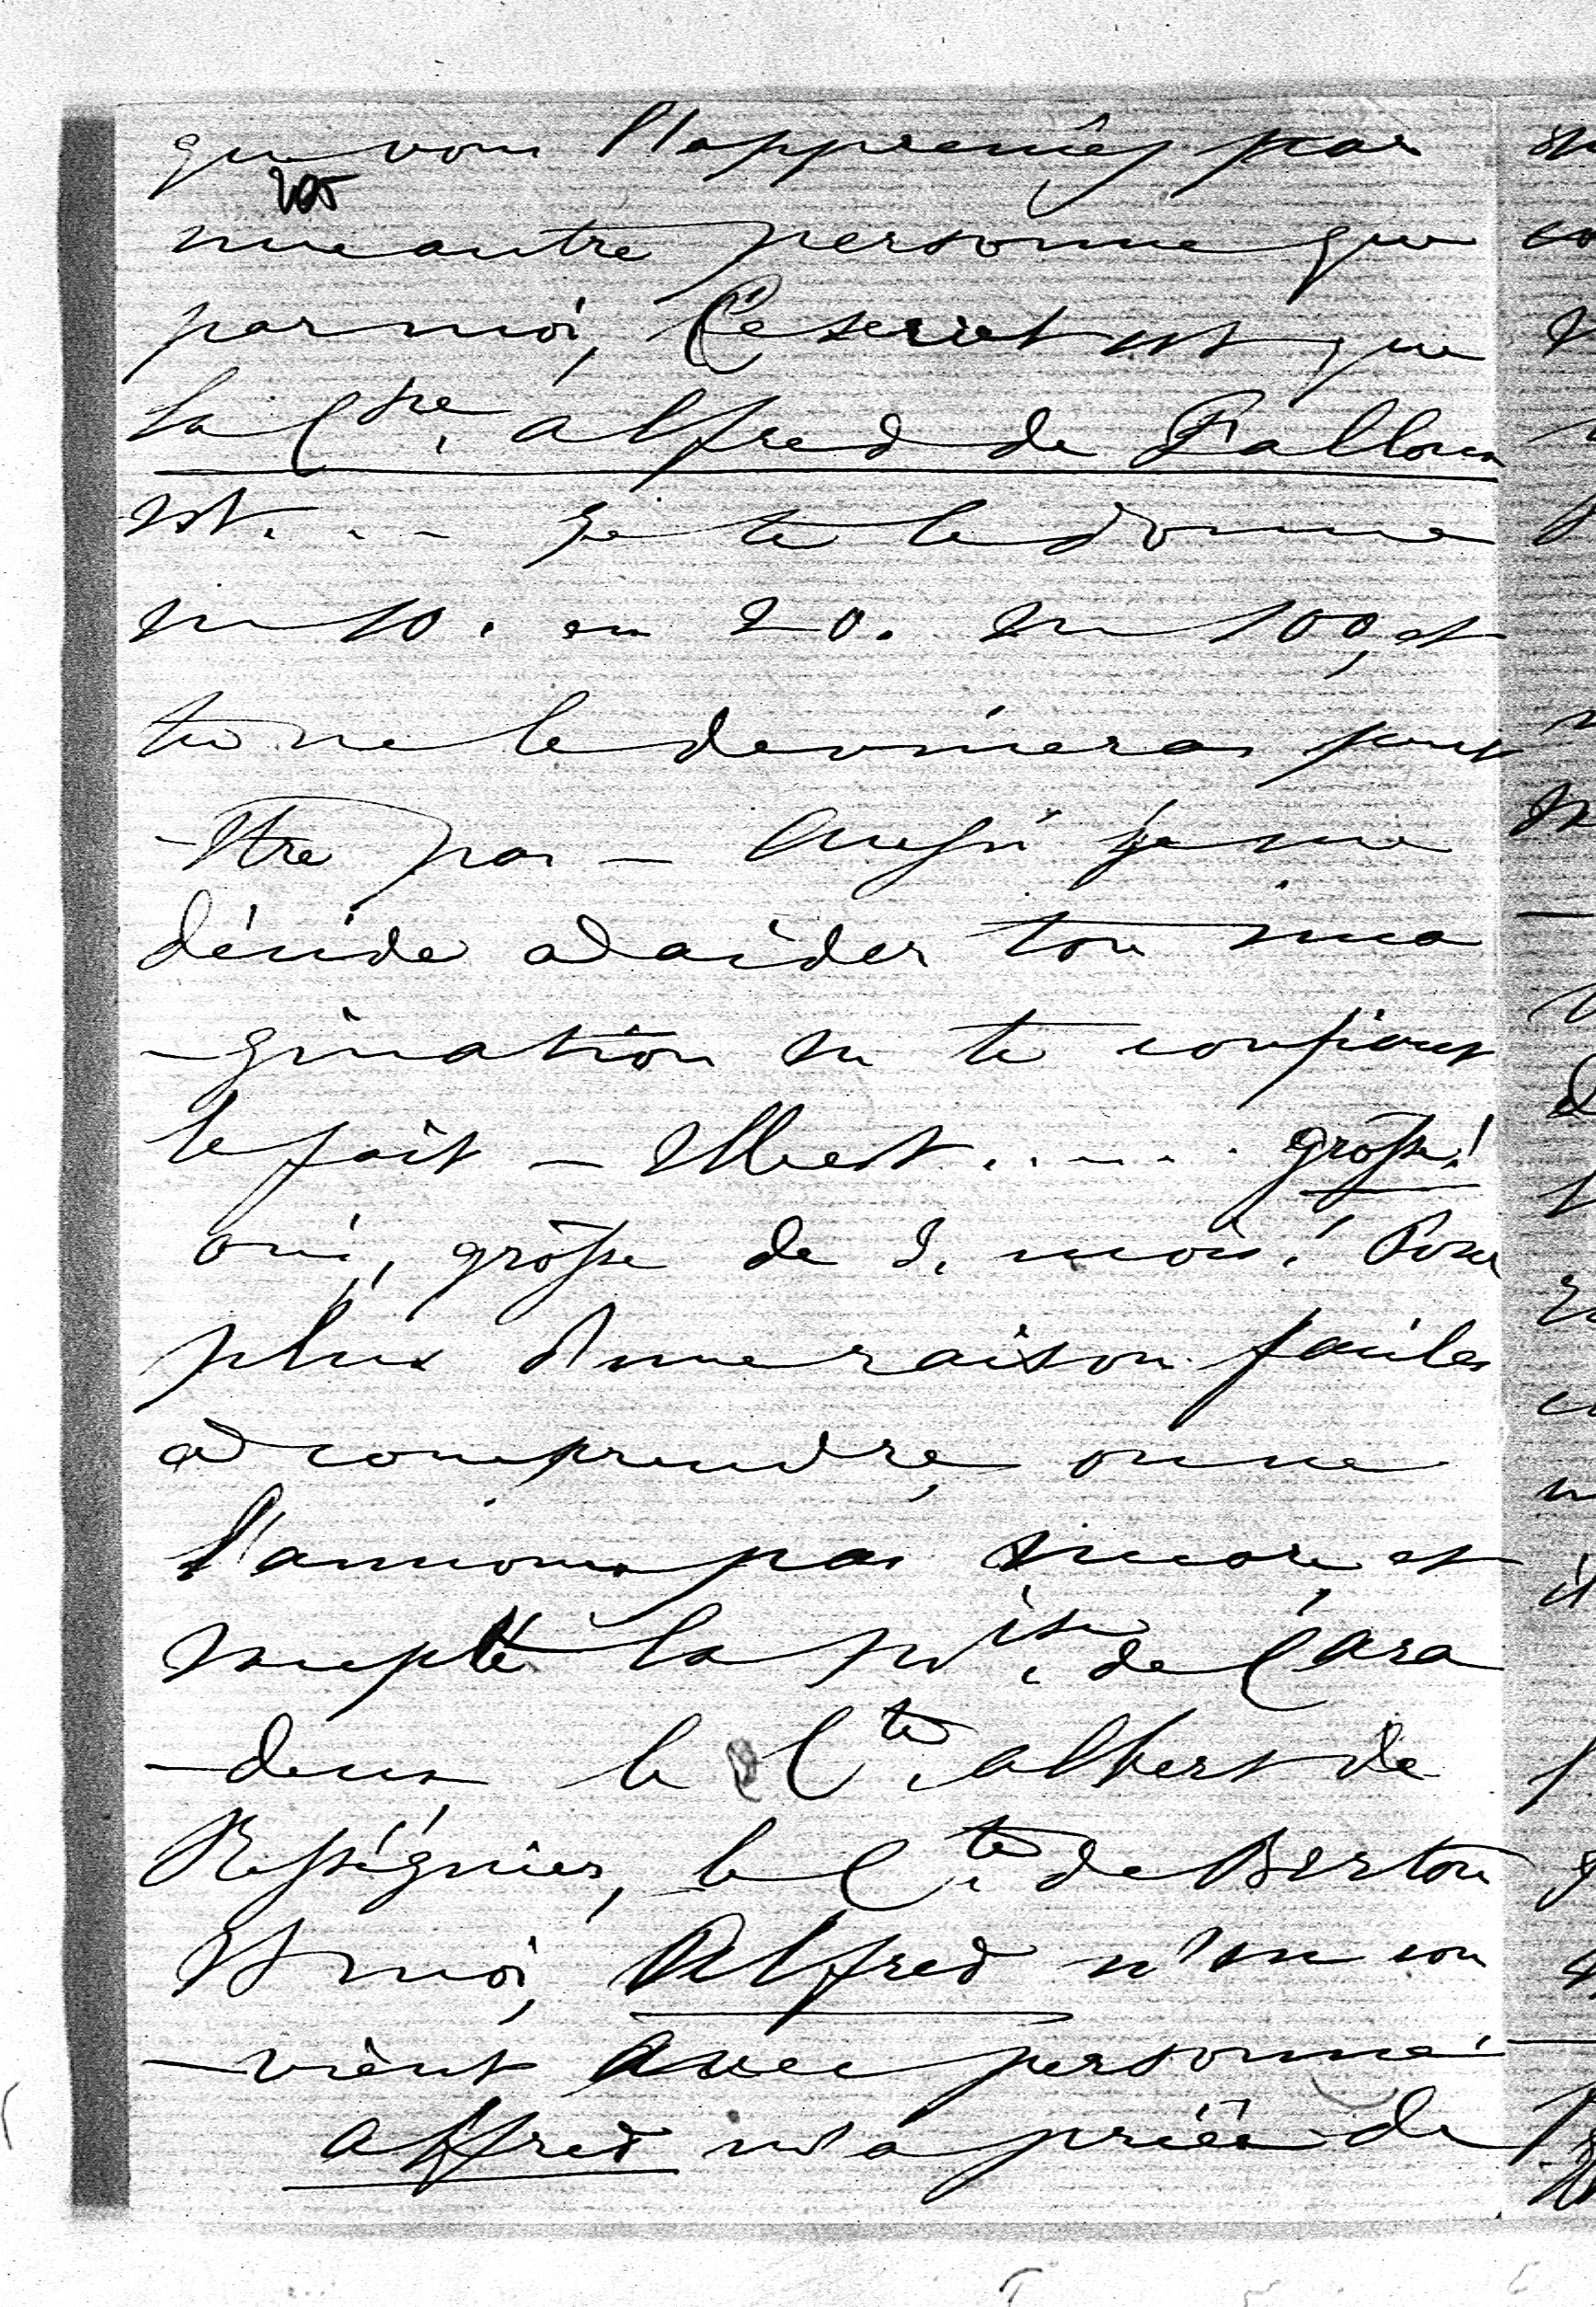 que vous l'appreniéz par
une autre personne que
par moi, Ce secret est que
la Ctsse. alfred de Falloux
est... Je te le donne
en 10. en 20. en 100, et
tu ne le devineras peut
-être pas - Aussi je me
décide a aider ton ima
-gination en te confiant
le fait - Elle est ...... grôsse!
oui, grôsse de 3. mois! Pour
plus d'une raison faciles
a comprendre, on ne
l'annonce pas encore et
excepté la Mise. de Cara
-deux, le Cte. albert de
Rességuier, le Cte. de Bertou
Et moi, Alfred n'en con
-vient avec personne
alfred m'a priée de